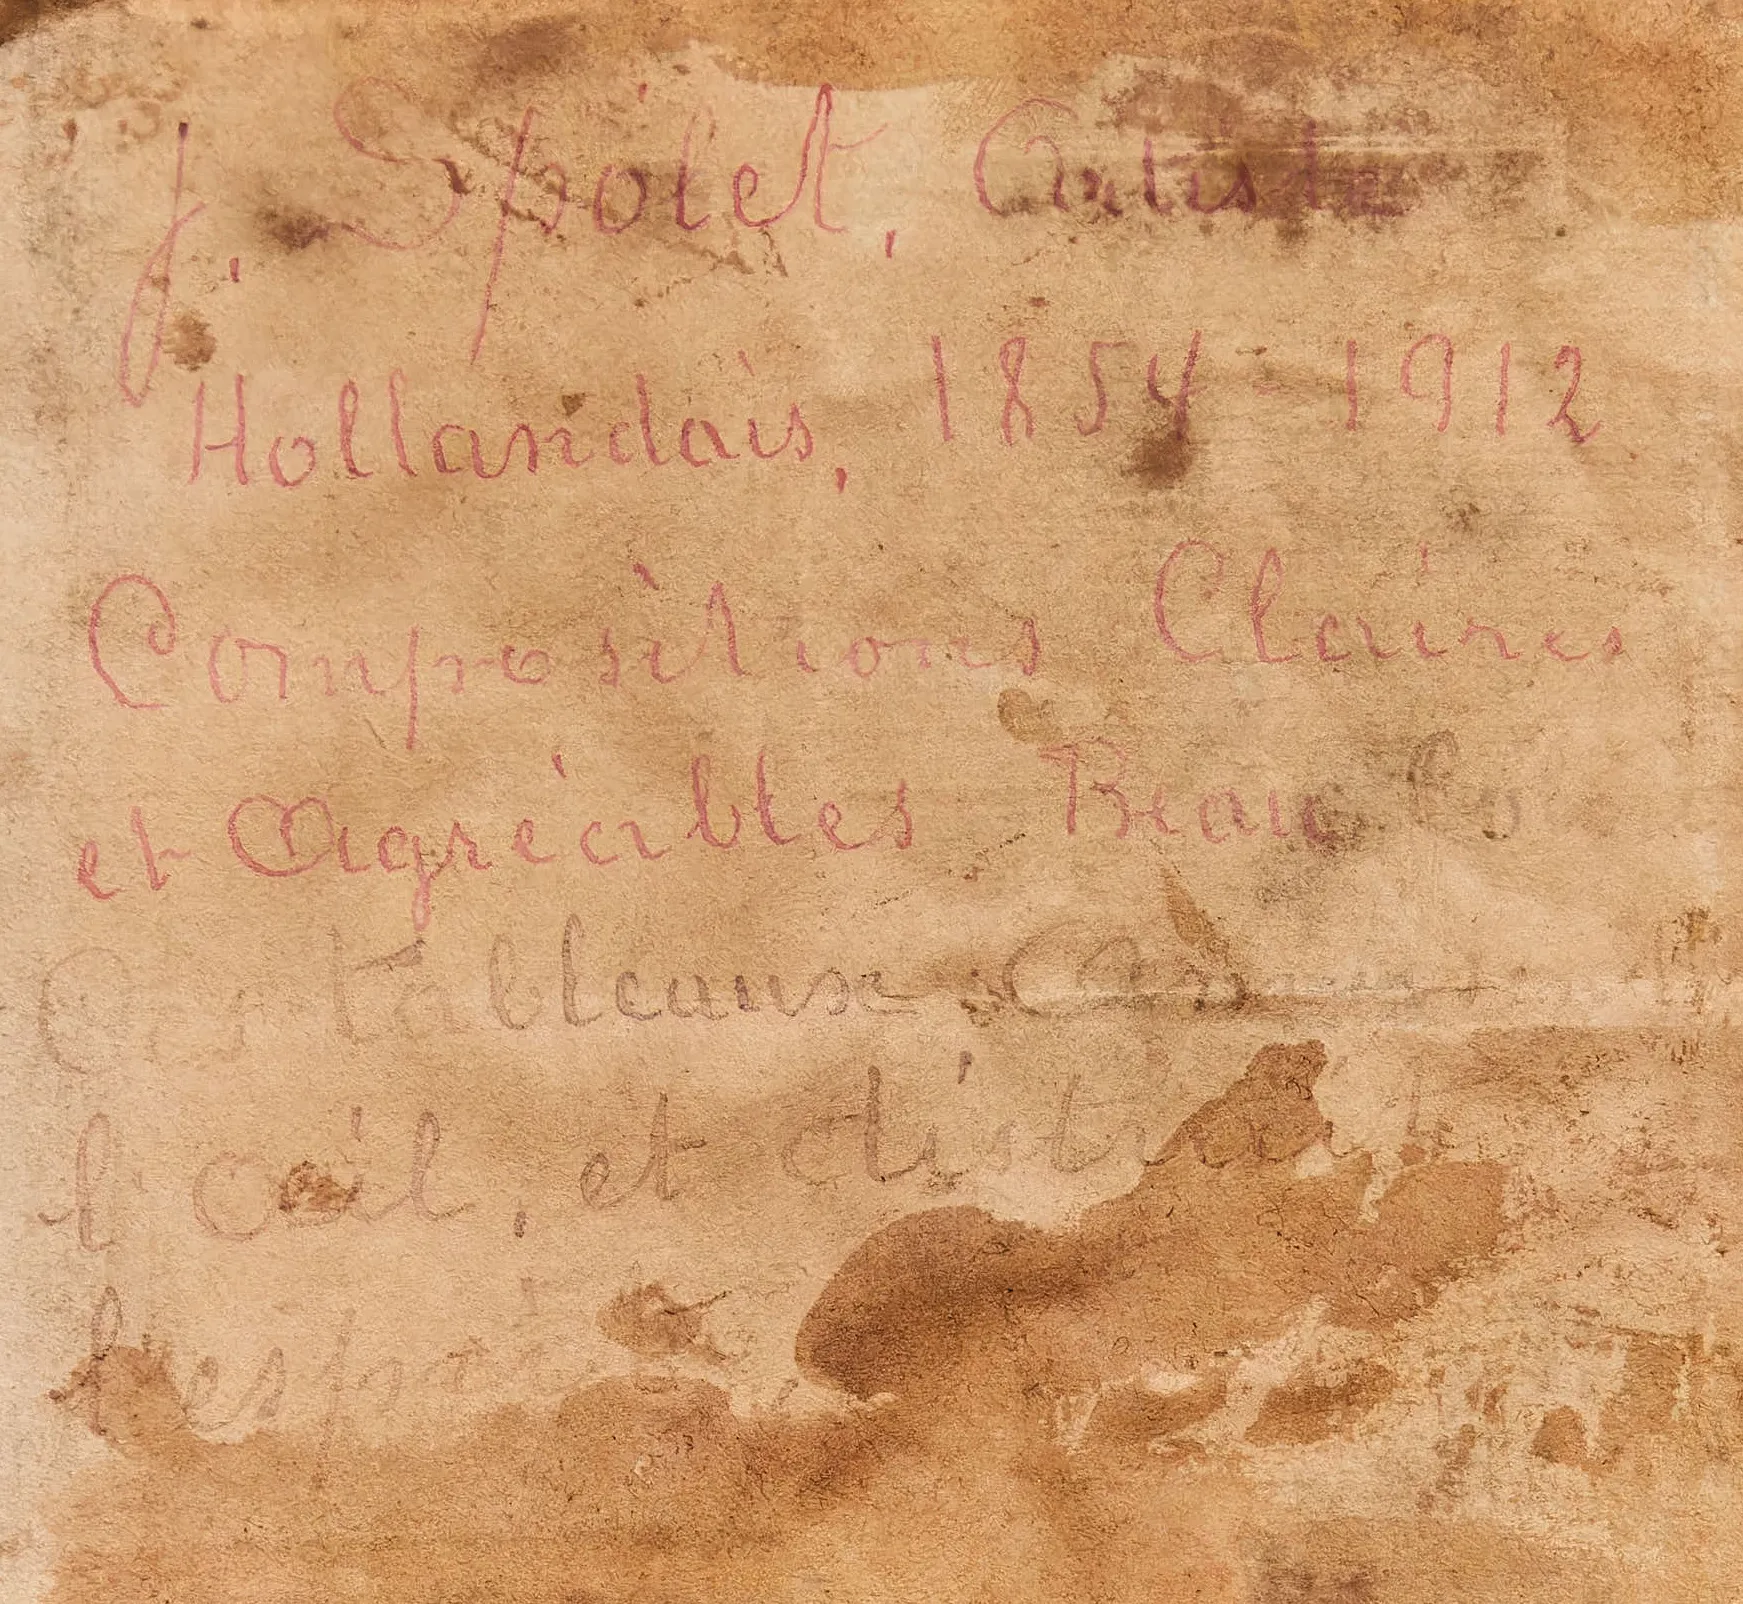 J. Spolet, Artiste
Hollandais, 1854-1912
Compositions Claires
et Agréables Beau
Ces tableaux
l'œil, et distrait
l'esprit